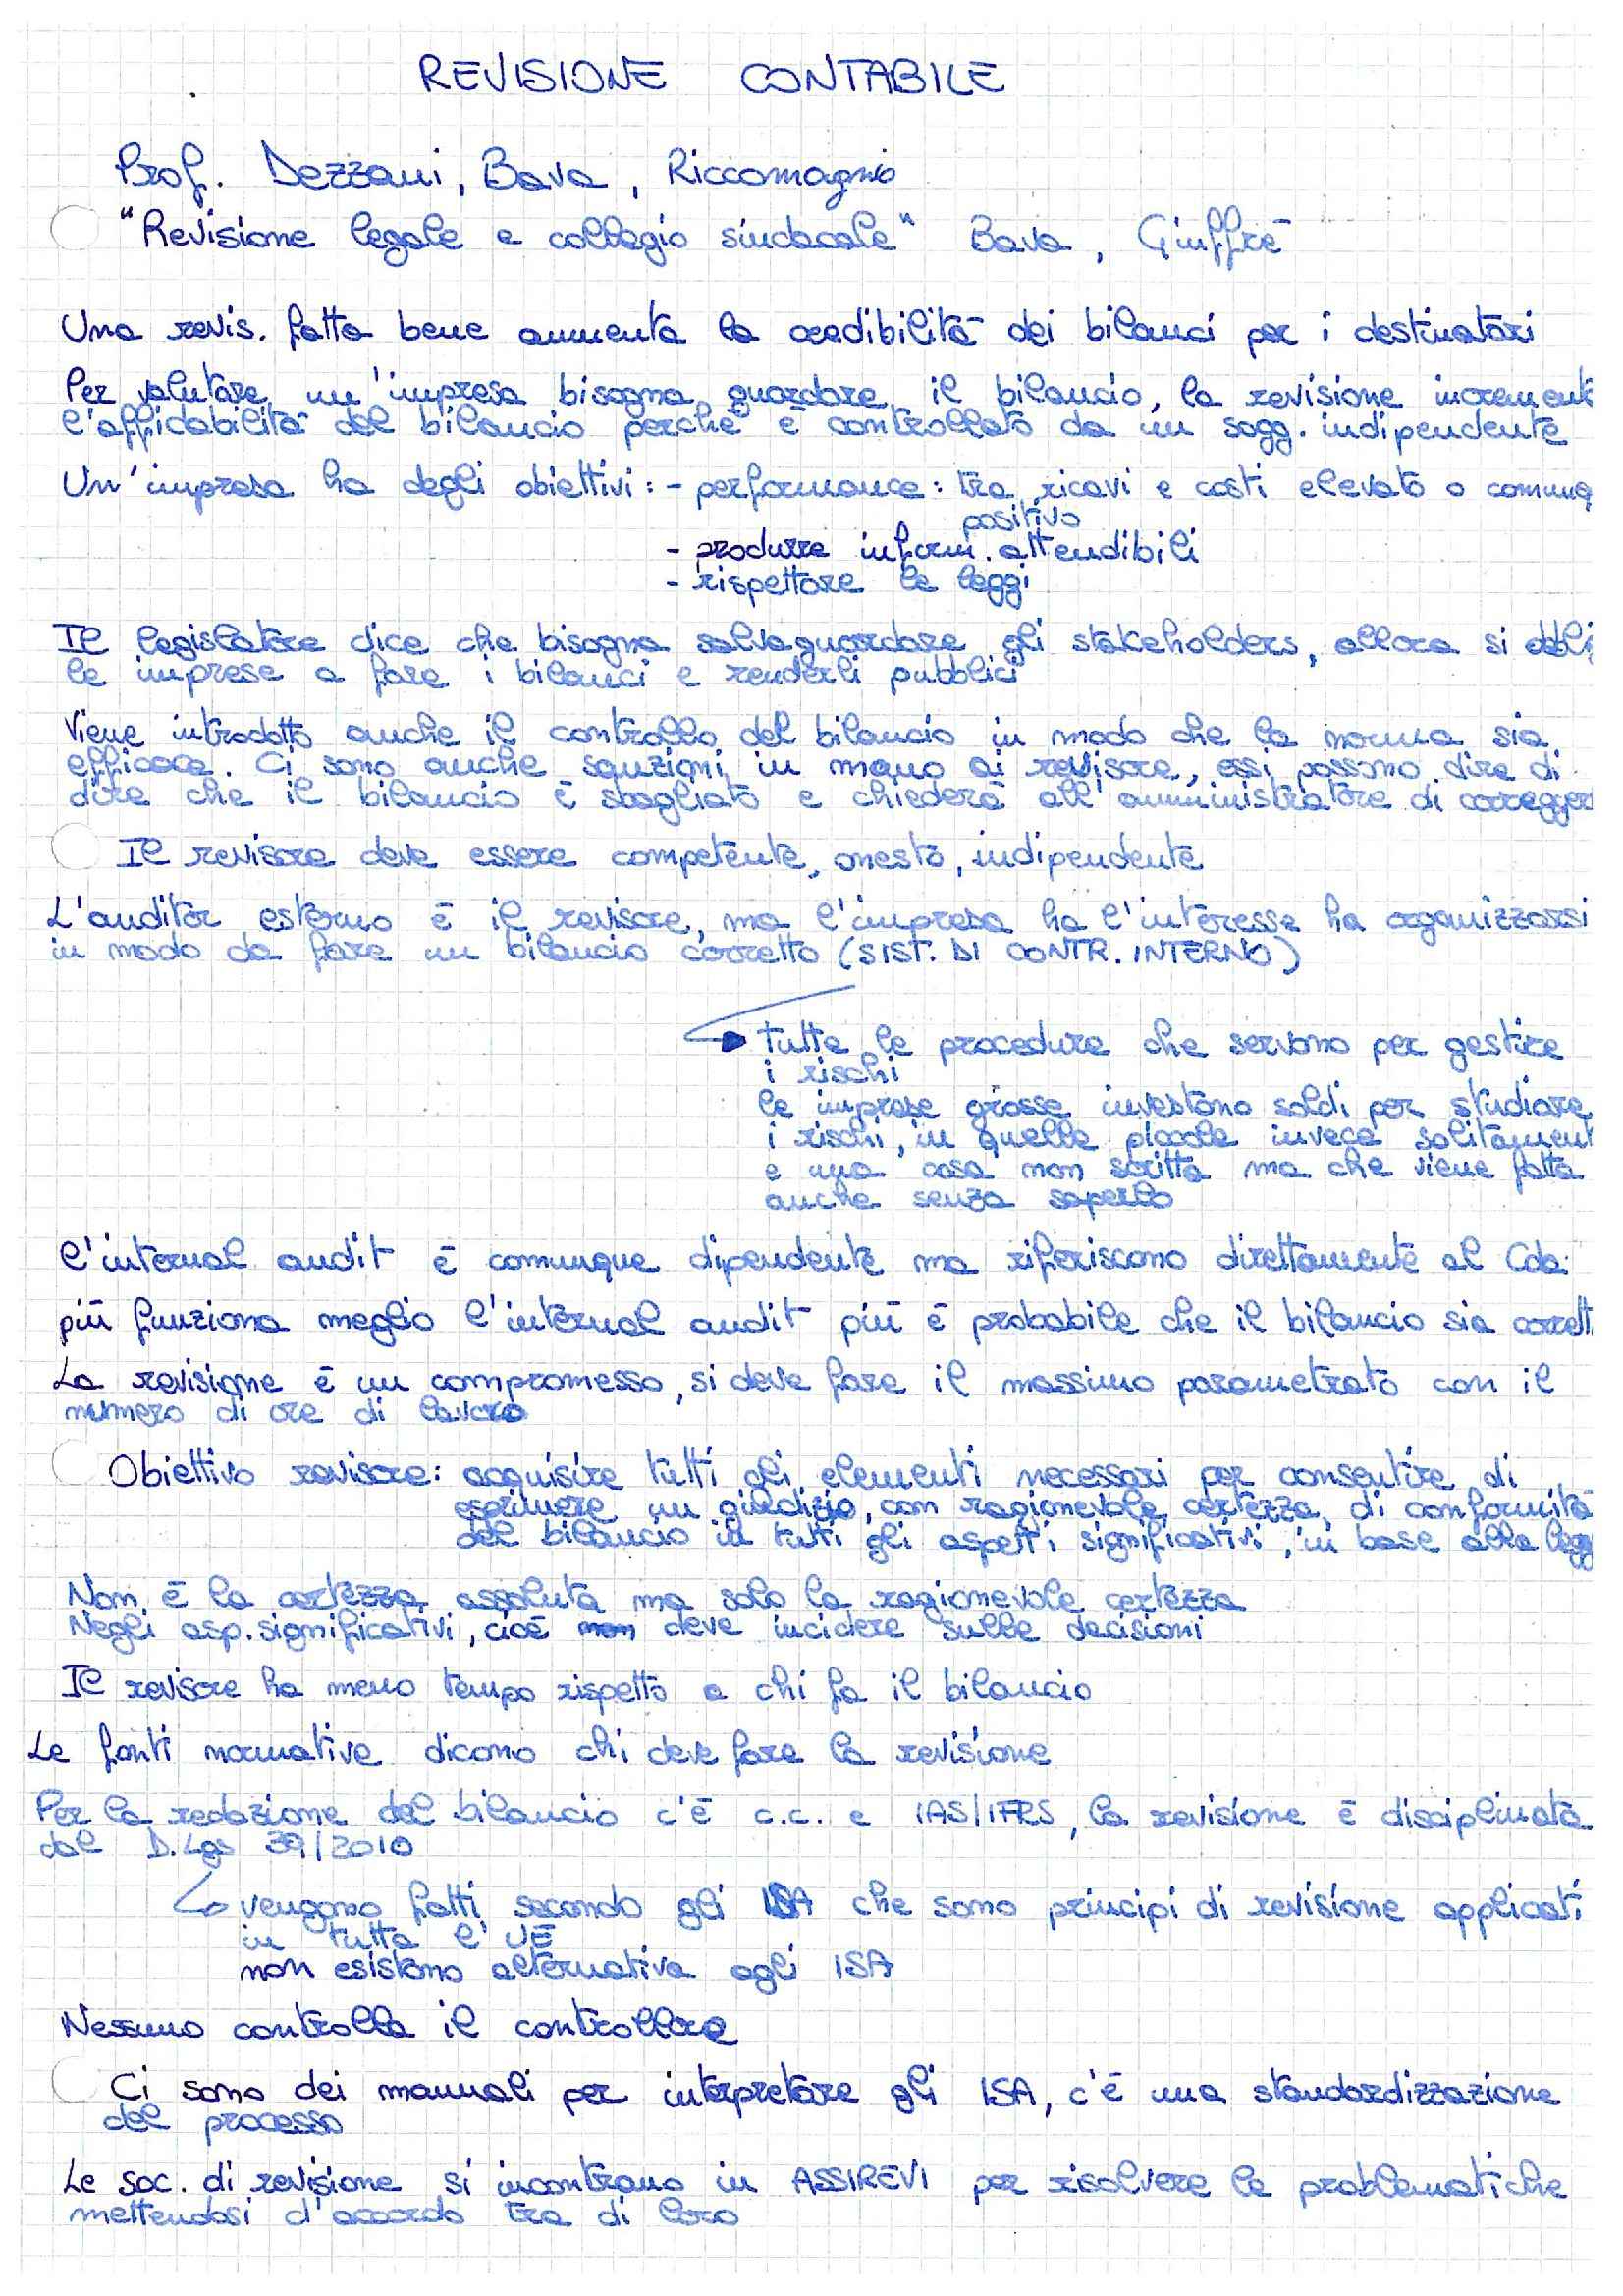 REVISIONE CONTABILE
Prof. Dezzani, Bava, Riccomagno
"Revisione legale e collegio sindacale" Bava, Giuffrè
Una revis. fatta bene aumenta la credibilità dei bilanci per i destinatari
Per valutare un'impresa bisogna guardare il bilancio, la revisione increment
l'affidabilità del bilancio perchè è controllato da un sogg. indipendente
Un'impresa ha degli obiettivi: - performance: tra ricavi e costi elevato o comunq
positivo
- produrre inform. attendibili
- rispettare le leggi
Il legislatore dice che bisogna salvaguardare gli stakeholders, allora si obbli
le imprese a fare i bilanci e renderli pubblici
Viene introdotto anche il controllo del bilancio in modo che la norma sia
efficace. Ci sono anche sanzioni in mano ai revisore, essi possono dire di
dire che il bilancio è sbagliato e chiedere all'amministratore di correggere
Il revisore deve essere competente, onesto, indipendente
L'auditor esterno è il revisore, ma l'impresa ha l'interesse ha organizzarsi
in modo da fare un bilancio corretto (SIST. DI CONTR. INTERNO)
tutte le procedure che servono per gestire
i rischi
le imprese grosse investono soldi per studiare
i rischi, in quelle piccole invece solitament
e una cosa non scritta ma che viene fatta
anche senza saperlo
l'internal audit è comunque dipendente ma riferiscono direttamente al Cda:
più funziona meglio l'internal audit più è probabile che il bilancio sia corrett
La revisione è un compromesso, si deve fare il massimo parametrato con il
numero di ore di lavoro
Obiettivo revisore: acquisire tutti gli elementi necessari per consentire di
esprimere un giudizio, con ragionevole certezza, di conformità
del bilancio in tutti gli aspetti significativi, in base alla legg
Non è la certezza assoluta ma solo la ragionevole certezza
Negli asp. significativi, cioè non deve incidere sulle decisioni
Il revisore ha meno tempo rispetto a chi fa il bilancio
Le fonti normative dicono chi deve fare la revisione
Per la redazione del bilancio c'è c.c. e IAS/IFRS, la revisione è disciplinata
dal D.Lgs 39/2010
vengono fatti secondo gli ISA che sono principi di revisione applicati
in tutta l'UE
non esistono alternativa agli ISA
Nessuno controlla il controllore
Ci sono dei manuali per interpretare gli ISA, c'è una standardizzazione
del processo
Le soc. di revisione si incontrano in ASSIREVI per risolvere le problematiche
mettendosi d'accordo tra di loro